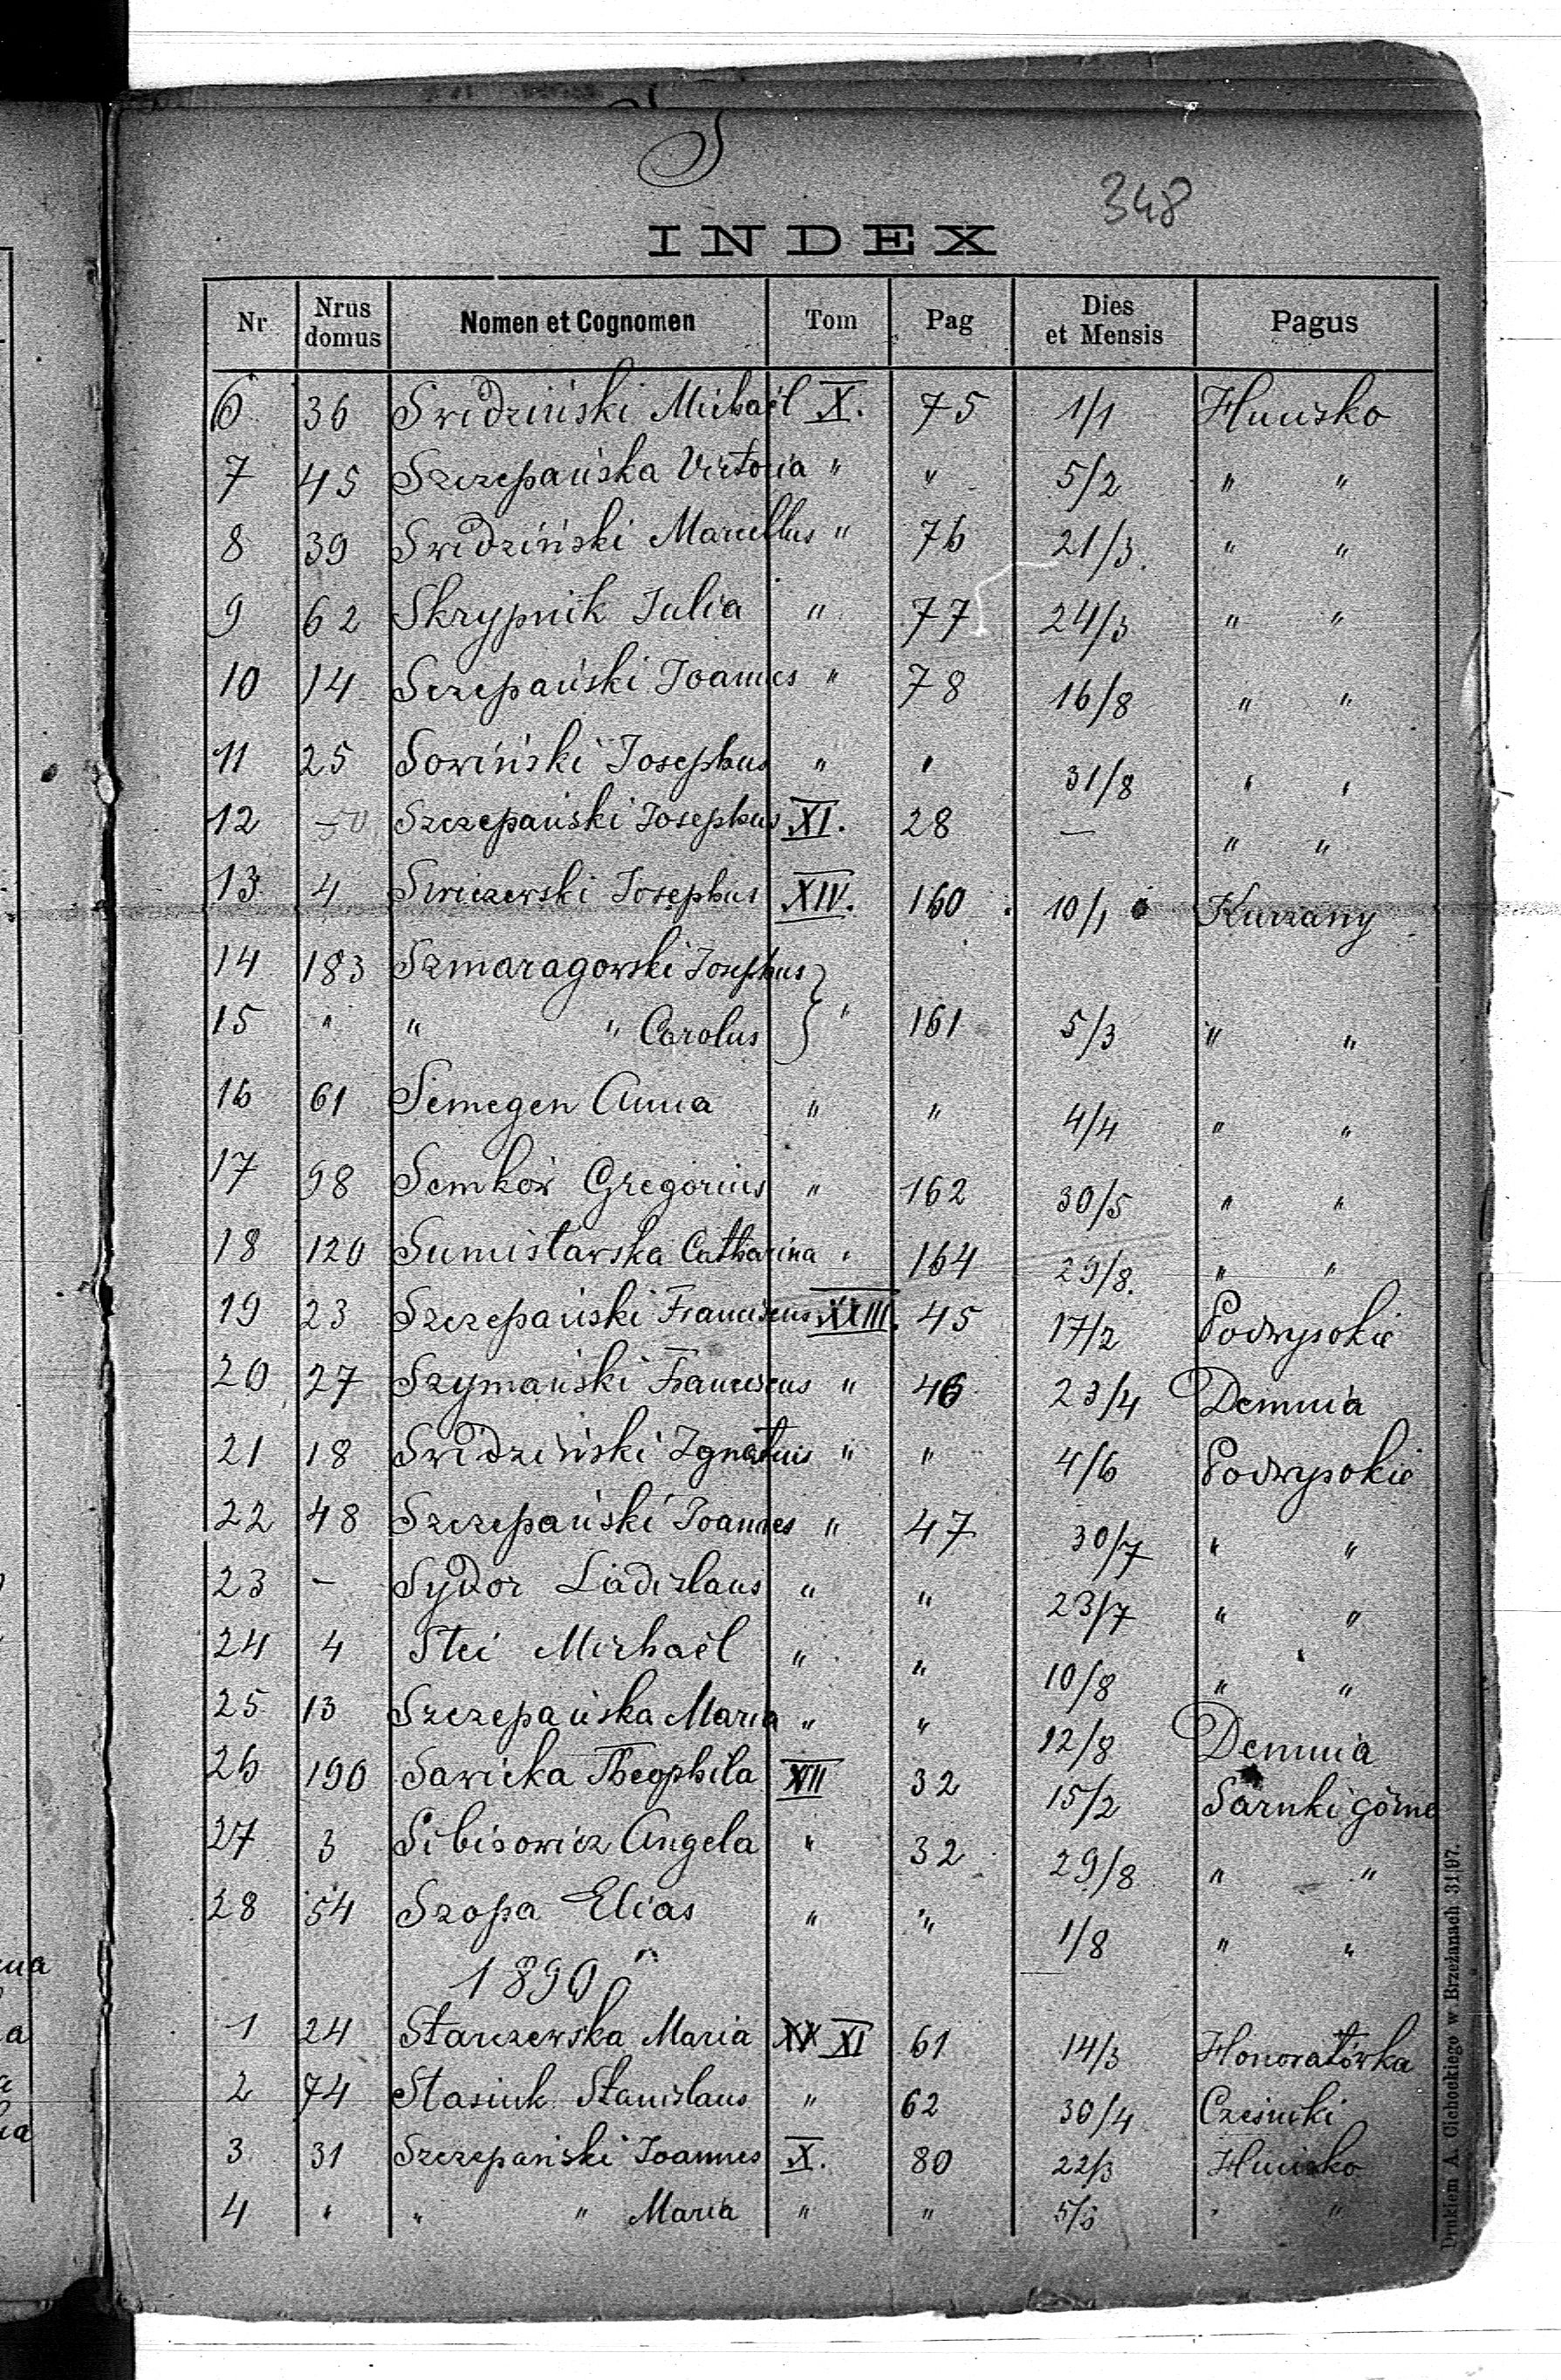 S
348
INDEX
Nr Nrus domus Nomen et Cognomen Tom Pag Dies et Mensis Pagus
6 36 Swidziński Michaël X. 75 1/1 Hucisko
7 45 Szczepańska Victoria " " 5/2 " "
8 39 Swidziński Marcellus " 76 21/3. " "
9 62 Skrypnik Julia " 77 24/3 " "
10 14 Sczepański Joannes " 78 16/8 " "
11 25 Sowiński Josephus " " 31/8 " "
12 50 Szczepański Josephus XI. 28 — " "
13 4 Swiczewski Josephus XIV. 160 10/1 Kurzany
14 183 Szmaragowski Josephus }
15 " " " Carolus } " 161 5/3 " "
16 61 Semegen Anna " " 4/4 " "
17 98 Semków Gregorius " 162 30/5 " "
18 120 Sumisławska Catharina " 164 29/8. " "
19 23 Szczepański Franciscus XIII. 45 17/2 Podwysokie
20 27 Szymański Franciscus " 46 23/4 Demnia
21 18 Swidziński Ignatius " " 4/6 Podwysokie
22 48 Szczepański Joannes " 47 30/7 " "
23 – Sydor Ladislaus " " 23/7 " "
24 4 Stei Michaël " " 10/8 " "
25 13 Szczepańska Maria " " 12/8 Demnia
26 190 Sawicka Theophila XII 32 15/2 Sarnki górne
27 3 Sibisowicz Angela " 32 29/8 " "
28 54 Szopa Elias " " 1/8 " "
1890
1 24 Starczewska Maria XI 61 14/3 Honoratówka
2 74 Stasiuk Stanislaus " 62 30/4 Czesniki
3 31 Szczepański Joannes X. 80 22/3 Hucisko
4 " " " Maria " " " "
Drukiem A. Cichockiego w Brzeżanach 31|97.